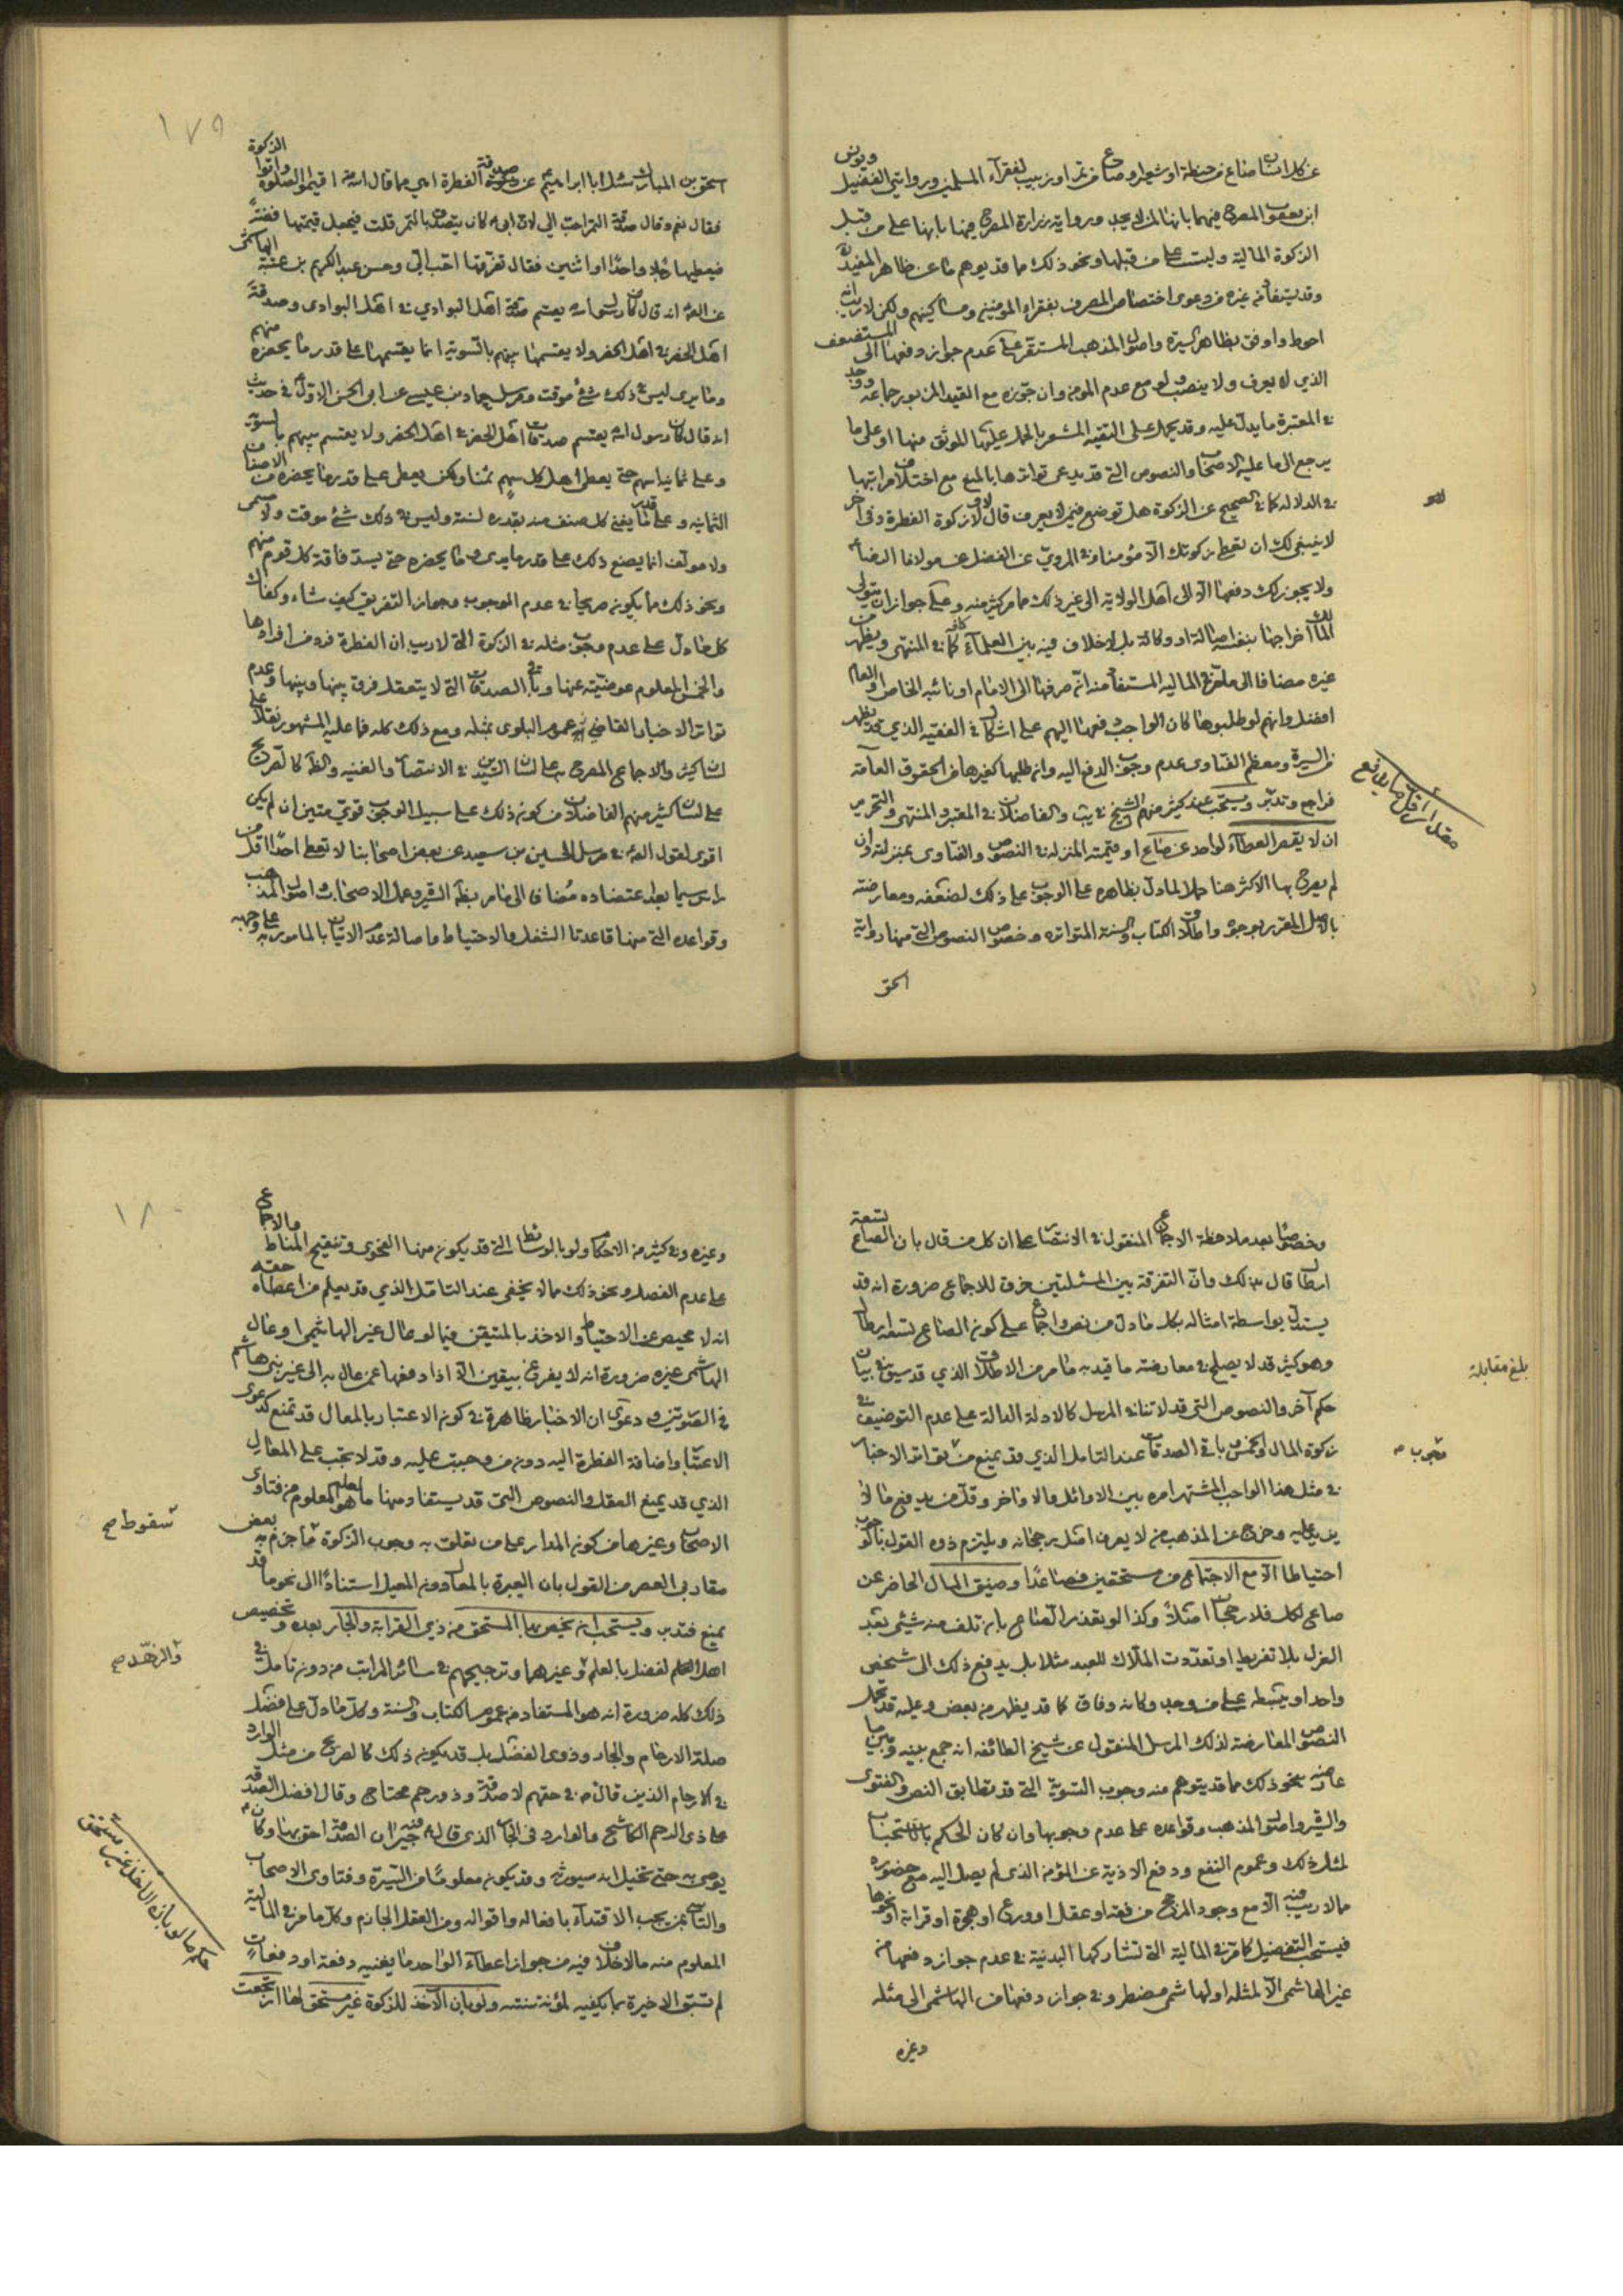 عن كل انسان صاع من حنطة او شعير او صاع من تمر او زبيب لفقرآء المسلمين وروايتي الفضيل ويونس
ابن يعقوب المصرح فيهما بانها لمن لا يجد ورواية زرارة المصرح فيها بانها على من قبل
الزكوة المالية وليست على من قبلها ونحو ذلك مما قد يوهم ما عن ظاهر المفيد
وقد يستفاد من غيره من دعوى اختصاص المصرف بفقراء المؤمنين ومساكينهم ولكن لا ريب انه
احوط واوفق بظاهر السيرة واصول المذهب المستقر على عدم جواز دفعها الى المستضعف
الذي لا يعرف ولا ينصب ولو مع عدم المومن وان جوزه مع القيد المزبور جماعة ووجد
في المعتبرة ما يدل عليه وقد يحمل على التقية المشعر بالحمل عليها الموثق منها او على ما
يرجع الى ما عليه الاصحاب والنصوص التي قد يدعى تواترها بالمنع مع اختلاف مراتبها
في الدلاله كما في الصحيح عن الزكوة هل توضع فيمن لا يعرف قال لا ولا زكوة الفطرة وفي اخر
لا ينبغي لك ان تعطي زكوتك الا مؤمنا وفي المروي عن الفضل عن مولانا الرضا
ولا يجوز لك دفعها الا الى اهل الولاية الى غير ذلك مما مر كثير منه وعلى جواز ان يتولى
المالك اخراجها بنفسه اصالة او وكالة بل لا خلاف فيه بين العلمآء كافة كما في المنتهى ويظهر من
غيره مضافا الى ما مر في الماليه المستفاد منه ان صرفها الى الامام او نائبه الخاص او العام
افضل وانهم لو طلبوها كان الواجب دفعها اليهم على اشكال في الفقيه الذي قد يظهر
من السيرة ومعظم الفتاوى عدم وجوب الدفع اليه وان طلبها كغيرها من الحقوق العامة
فراجع وتدبر ويستحب عند كثير منهم الشيخ في يب والفاضلان في المعتبر والمنتهى والتحرير
ان لا يقصر العطآء لواحد عن صاع او قيمته المنزله في النصوص والفتاوى بمنزلته وان
لم يصرح بها الاكثر هنا حملا لما دل بظاهره على الوجوب على ذلك لضعفه ومعارضته
بالاصل المقرر بوجوه واطلاق الكتاب والسنة المتواتره وخصوص النصوص التي منها رواية
اسحق
مقدار اقل ما يدفع
١٧٩
اسحق بن المبارك سئل ابا ابراهيم عن صدقة الفطرة اهي مما قال الله اقيموا الصلوة واتوا الزكوة
فقال نعم وقال صدقة التمر احب الي لان ابي كان يتصدق بالتمر قلت فيجعل قيمتها فضة
فيعطيها رجلا واحدا او اثنين فقال تفرقها احب الي وحسن عبد الكريم بن عتبة الهاشمي
عن الصه انه قال كان رسول الله يقسم صدقة اهل البوادي في اهل البوادى وصدقة
اهل الحضر في اهل الحضر ولا يقسمها بينهم بالسوية انما يقسمها على قدر ما يحضره منهم
وما يرى ليس في ذلك شئ موقت ومرسل حماد بن عيسى عن ابى الحسن الاول في حديث
انه قال كان رسول الله يقسم صدقات اهل الحضر في اهل الحضر ولا يقسم بينهم بالسوية
وعلى ثمانية اسهم حتى يعطى اهل كل سهم ثمنا ولكن يعطى على قدر ما يحضره من الاصناف
الثمانيه وعلى قدر ما يغنى كل صنف منه بقدره لسنة وليس في ذلك شئ موقت ولا مسمى
ولا مولف انما يصنع ذلك على قدر ما يرى وما يحضره حتى يسد فاقة كل قوم منهم
ونحو ذلك مما يكون صريحا في عدم الوجوب وجواز التفريق كيف شاء وكذلك
كل ما دل على عدم وجوب مثله في الزكوة التي لا ريب ان الفطرة فرد من افرادها
والخمس المعلوم عوضيته عنها وباقي الصدقات التي لا يتعقل فرق بينها وبينها وعدم
تواتر الاخبار القاضي به عموم البلوى بمثله ومع ذلك كله فما عليه المشهور نقلا على
لسان كثير والاجماع المصرح به على لسان السيدين في الانتصار والغنيه والظاهر كالصريح
على لسان كثير منهم الفاضلان من كونه ذلك على سبيل الوجوب قوي متين ان لم يكن
اقوى لقول الصه في مرسل الحسين بن سعيد عن بعض اصحابنا لا تعط احدا اقل من
راس سيما بعد اعتضاده مضافا الى ما مر بظاهر السيرة وعمل الاصحاب واصول المذهب
وقواعده التي منها قاعدتا الشغل والاحتياط واصالة عدم الاتيان بالمامور به على وجهه
وخصوصا بعد ملاحظة الاجماع المنقول في الانتصار على ان كل من قال بان الصاع تسعة
ارطال قال بذلك وان التفرقة بين المسئلتين خرق للاجماع ضرورة انه قد
يستدل بواسطة امثاله بكل ما دل من نص واجماع على كون الصاع تسعة ارطال
وهو كثير قد لا يصلح في معارضته ما قيد به ما مر من الاطلاق الذي قد سيق في بيان
حكم آخر والنصوص التي قد لا تنافي المرسل كالادلة الدالة على عدم التوظيف في
زكوة المال والخمس وباقي الصدقات عند التامل الذي قد يمنع من تواتر الاخبار
في مثل هذا الواجب المشتهر امره بين الاوائل والاواخر وقل من يدفع ما لا
يزيد عليه وخرج عن المذهب من لا يعرف امثل رجحانه ويلتزم ذوه القول بالوجوب
احتياطا الا مع الاجتماع من مستحقين فصاعدا وضيق المال الحاضر عن
صاع لكل فلا رجحان اصلا وكذا لو تعذر الصاع بان تلف منه شئ بعد
العزل بلا تفريط او تعددت الملاك للعبد مثلا بل يدفع ذلك الى شخص
واحد او يبسطه على من وجد وكانه وفاق كما قد يظهر من بعض وعليه قد تحمل
النصوص المعارضة لذلك المرسل المنقول عن شيخ الطائفه انه جمع بينه وبين ما
عارضه بنحو ذلك مما قد يتوهم منه وجوب التسوية التي قد تطابق النص والفتوى
والسيرة واصول المذهب وقواعده على عدم وجوبها وان كان الحكم بالاستحباب
لمثل ذلك وعموم النفع ودفع الاذية عن المؤمن الذى لم يصل اليه مع حضوره
مما لا ريب فيه الا مع وجود المرجح من فقه او عقل او ورع او هجرة او قرابة او نحوها
فيستحب التفضيل كما مر في المالية التي تشاركها البدنية في عدم جواز دفعها من
غير الهاشمى الا لمثله او لهاشمى مضطر وفي جواز دفعها من الهاشمى الى مثله
وغيره
بلغ مقابلة
١٨٠
وغيره وفي كثير من الاحكام ولو بالوسائط التي قد يكون منها الفحوى وتنقيح المناط والاجماع
على عدم الفصل ونحو ذلك مما لا يخفى عند التامل الذي قد يعلم من اعطائه حقه
انه لا محيص عن الاحتياط والاخذ بالمتيقن فيما لو عال غير الهاشمى او عال
الهاشمى غيره ضرورة انه لا يفرغ بيقين الا اذا دفعها عمن عال به الى غير بني هاشم
في الصورتين ودعوى ان الاخبار ظاهرة في كون الاعتبار بالمعال قد تمنع كدعوى
الاعتبار واضافة الفطرة اليه دون من وجبت عليه وقد لا تجب على المعال
الذي قد يمنع العقل والنصوص التي قد يستفاد منها ما هو المعلوم من فتاوى
الاصحاب وغيرها من كون المدار على من تعلقت به وجوب الزكوة فما جزم به بعض
مقاربى العصر من القول بان العبرة بالمعال دون المعيل استنادا الى نحو ما قد
يمنع فتدبر ويستحب ان يخص بها المستحق من ذي القرابة والجار بعده وتخصيص
اهل العلم لفضل بالعلم وغيرهما وترجيحهم في سائر المراتب من دون تامل في
ذلك كله ضرورة انه هو المستفاد من عموم الكتاب والسنة وكل ما دل على فضل
صلة الارحام والجار وذوى الفضل بل قد يكون ذلك كالصريح من مثل الوارد
في الارحام الذين قال في حقهم لا صدقة وذو رحم محتاج وقال افضل الصدقة
على ذى الرحم الكاشح والوارد في الجار الذى قال فيه جيران الصدقة احق بها وكان
يوصى به حتى تخيل انه سيورثه وقد يكون معلوما من السيرة وفتاوى الاصحاب
والتاسى بمن يجب الاقتدآء بافعاله واقواله ومن العقل الجازم وكل ما مر في المالية
المعلوم منه مما لا خلاف فيه من جواز اعطاء الواحد ما يغنيه دفعة او دفعات
لم تسبق الاخيرة بما يكفيه لمؤنة سنته ولو بان الآخذ للزكوة غير مستحق لها ارتجعت
سقوط صح
والزهد صح
حكم ما لو بان الآخذ غير مستحق